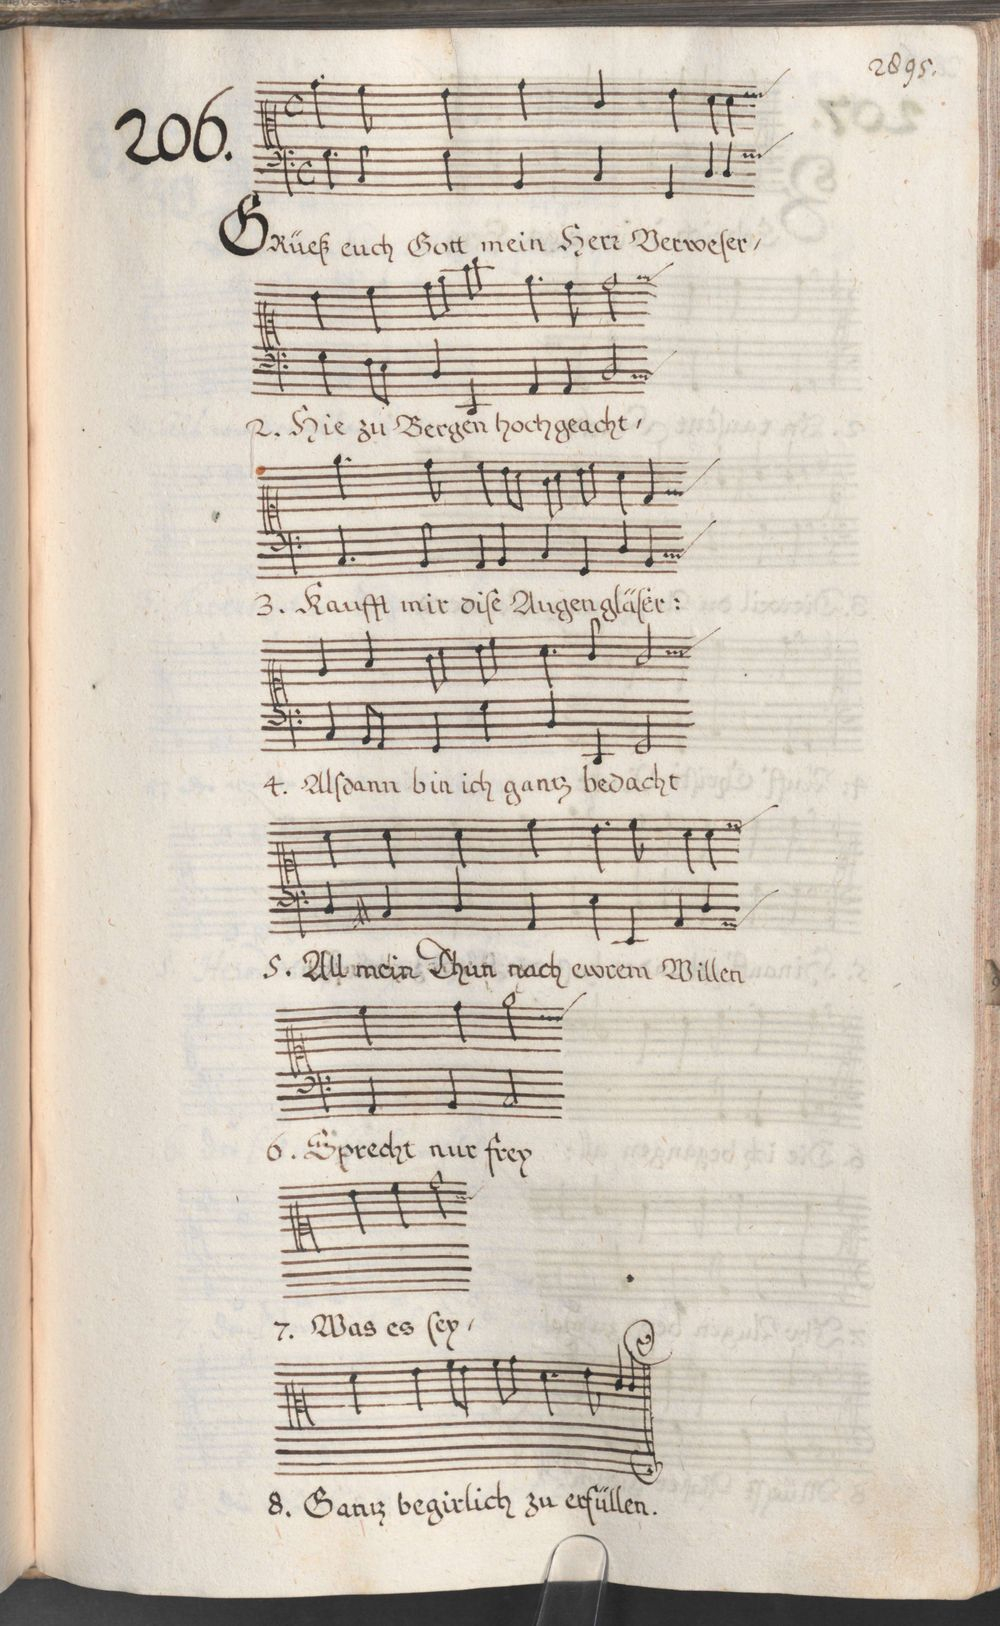 2895.
206.
GRüeß euch Gott mein Herr Verweser,
2. Hie zu Bergen hochgeacht,
3. Kaufft mir dise Augengläser:
4. Alsdann bin ich gantz bedacht
5. All mein Thun nach ewrem Willen
6. Sprecht nur frey
7. Was es sey,
8. Gantz begirlich zu erfüllen.